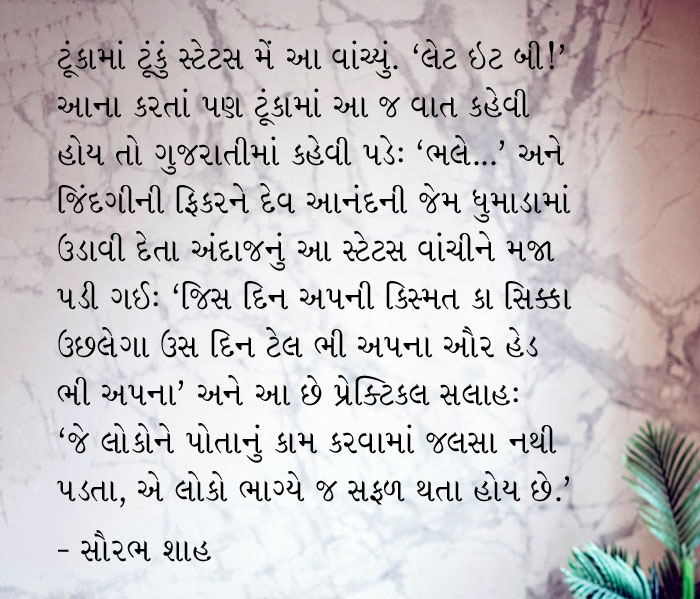 ટૂંકામાં ટૂંકું સ્ટેટસ મેં આ વાંચ્યું. ‘લેટ ઇટ બી!’
આના કરતાં પણ ટૂંકામાં આ જ વાત કહેવી
હોય તો ગુજરાતીમાં કહેવી પડેઃ ‘ભલે...’ અને
જિંદગીની ફિકરને દેવ આનંદની જેમ ધુમાડામાં
ઉડાવી દેતા અંદાજનું આ સ્ટેટસ વાંચીને મજા
પડી ગઈઃ ‘જિસ દિન અપની કિસ્મત કા સિક્કા
ઉછલેગા ઉસ દિન ટેલ ભી અપના ઔર હેડ
ભી અપના’ અને આ છે પ્રેક્ટિકલ સલાહઃ
‘જે લોકોને પોતાનું કામ કરવામાં જલસા નથી
પડતા, એ લોકો ભાગ્યે જ સફળ થતા હોય છે.’
- સૌરભ શાહ